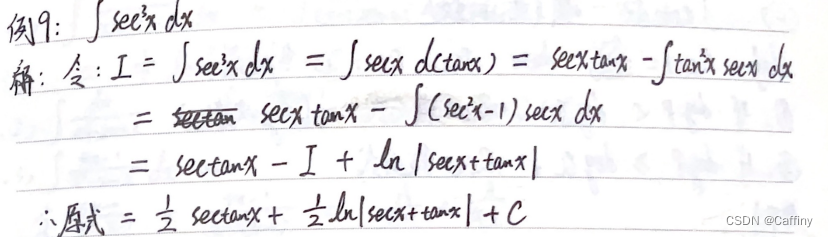 例9: ∫ sec³x dx
解: 令: I = ∫ sec³x dx = ∫ secx d(tanx) = secxtanx - ∫ tan²x secx dx
= secx tanx - ∫ (sec²x-1) secx dx
= sectanx - I + ln |secx+tanx|
∴原式 = ½ sectanx + ½ ln|secx+tanx| + C
CSDN @Caffiny